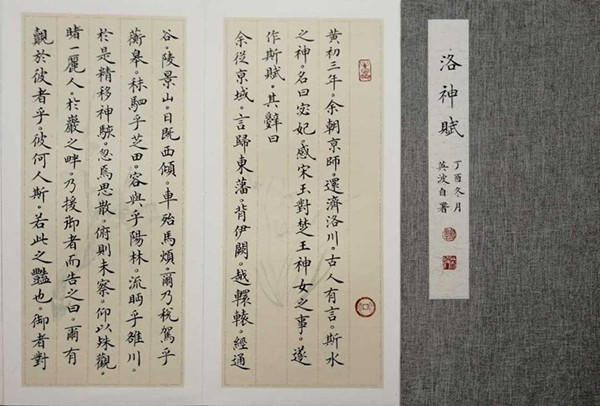 洛神賦
丁酉冬月
英波自署
黄初三年。余朝京師。還濟洛川。古人有言。斯水
之神。名曰宓妃。感宋玉對楚王神女之事。遂
作斯賦。其辭曰
余從京域。言歸東藩。背伊闕。越轘轅。經通
谷。陵景山。日既西傾。車殆馬煩。爾乃税駕乎
蘅皋。秣駟乎芝田。容與乎陽林。流眄乎雒川。
於是精移神駭。忽焉思散。俯則未察。仰以殊觀。
睹一麗人。於巖之畔。乃援御者而告之曰。爾有
覿於彼者乎。彼何人斯。若此之豔也。御者對